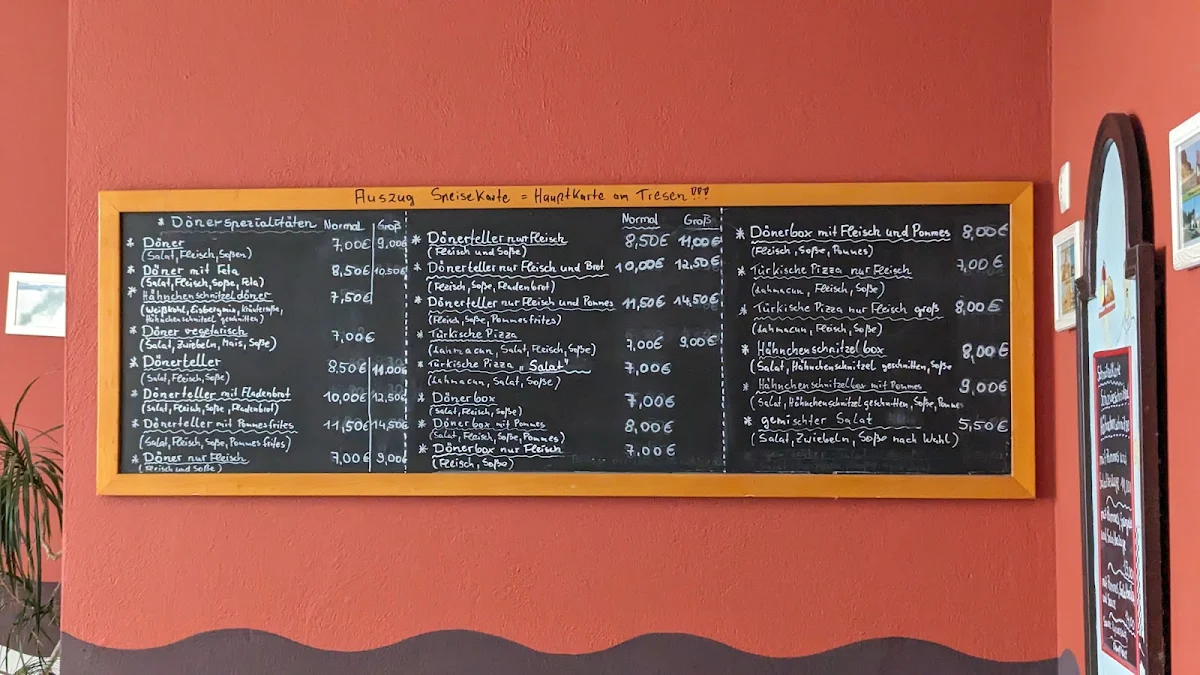 Auszug Speisekarte = Hauptkarte am Tresen!!!
* Dönerspezialitäten Normal Groß
* Döner 7,00€ 9,00€
(Salat, Fleisch, Soßen)
* Döner mit Feta 8,50€ 10,50€
(Salat, Fleisch, Soße, Feta)
* Hähnchenschnitzeldöner 7,50€
(Weißkohl, Eisbergmix, Kräutersoße,
Hähnchenschnitzel geschnitten)
* Döner vegetarisch 7,00€
(Salat, Zwiebeln, Mais, Soße)
* Dönerteller 8,50€ 11,00€
(Salat, Fleisch, Soße)
* Dönerteller mit Fladenbrot 10,00€ 12,50€
(Salat, Fleisch, Soße, Fladenbrot)
* Dönerteller mit Pommes frites 11,50€ 14,50€
(Salat, Fleisch, Soße, Pommes frites)
* Döner nur Fleisch 7,00€ 9,00€
(Fleisch und Soße)
Normal Groß
* Dönerteller nur Fleisch 8,50€ 11,00€
(Fleisch und Soße)
* Dönerteller nur Fleisch und Brot 10,00€ 12,50€
(Fleisch, Soße, Fladenbrot)
* Dönerteller nur Fleisch und Pommes 11,50€ 14,50€
(Fleisch, Soße, Pommes frites)
* Türkische Pizza 7,00€ 9,00€
(Lahmacun, Salat, Fleisch, Soße)
* Türkische Pizza „Salat" 7,00€
(Lahmacun, Salat, Soße)
* Dönerbox 7,00€
(Salat, Fleisch, Soße)
* Dönerbox mit Pommes 8,00€
(Salat, Fleisch, Soße, Pommes)
* Dönerbox nur Fleisch 7,00€
(Fleisch, Soße)
* Dönerbox mit Fleisch und Pommes 8,00€
(Fleisch, Soße, Pommes)
* Türkische Pizza nur Fleisch 7,00€
(Lahmacun, Fleisch, Soße)
* Türkische Pizza nur Fleisch groß 8,00€
(Lahmacun, Fleisch, Soße)
* Hähnchenschnitzelbox 8,00€
(Salat, Hähnchenschnitzel geschnitten, Soße
* Hähnchenschnitzelbox mit Pommes 9,00€
(Salat, Hähnchenschnitzel geschnitten, Soße, Pommes
* gemischter Salat 5,50€
(Salat, Zwiebeln, Soße nach Wahl)